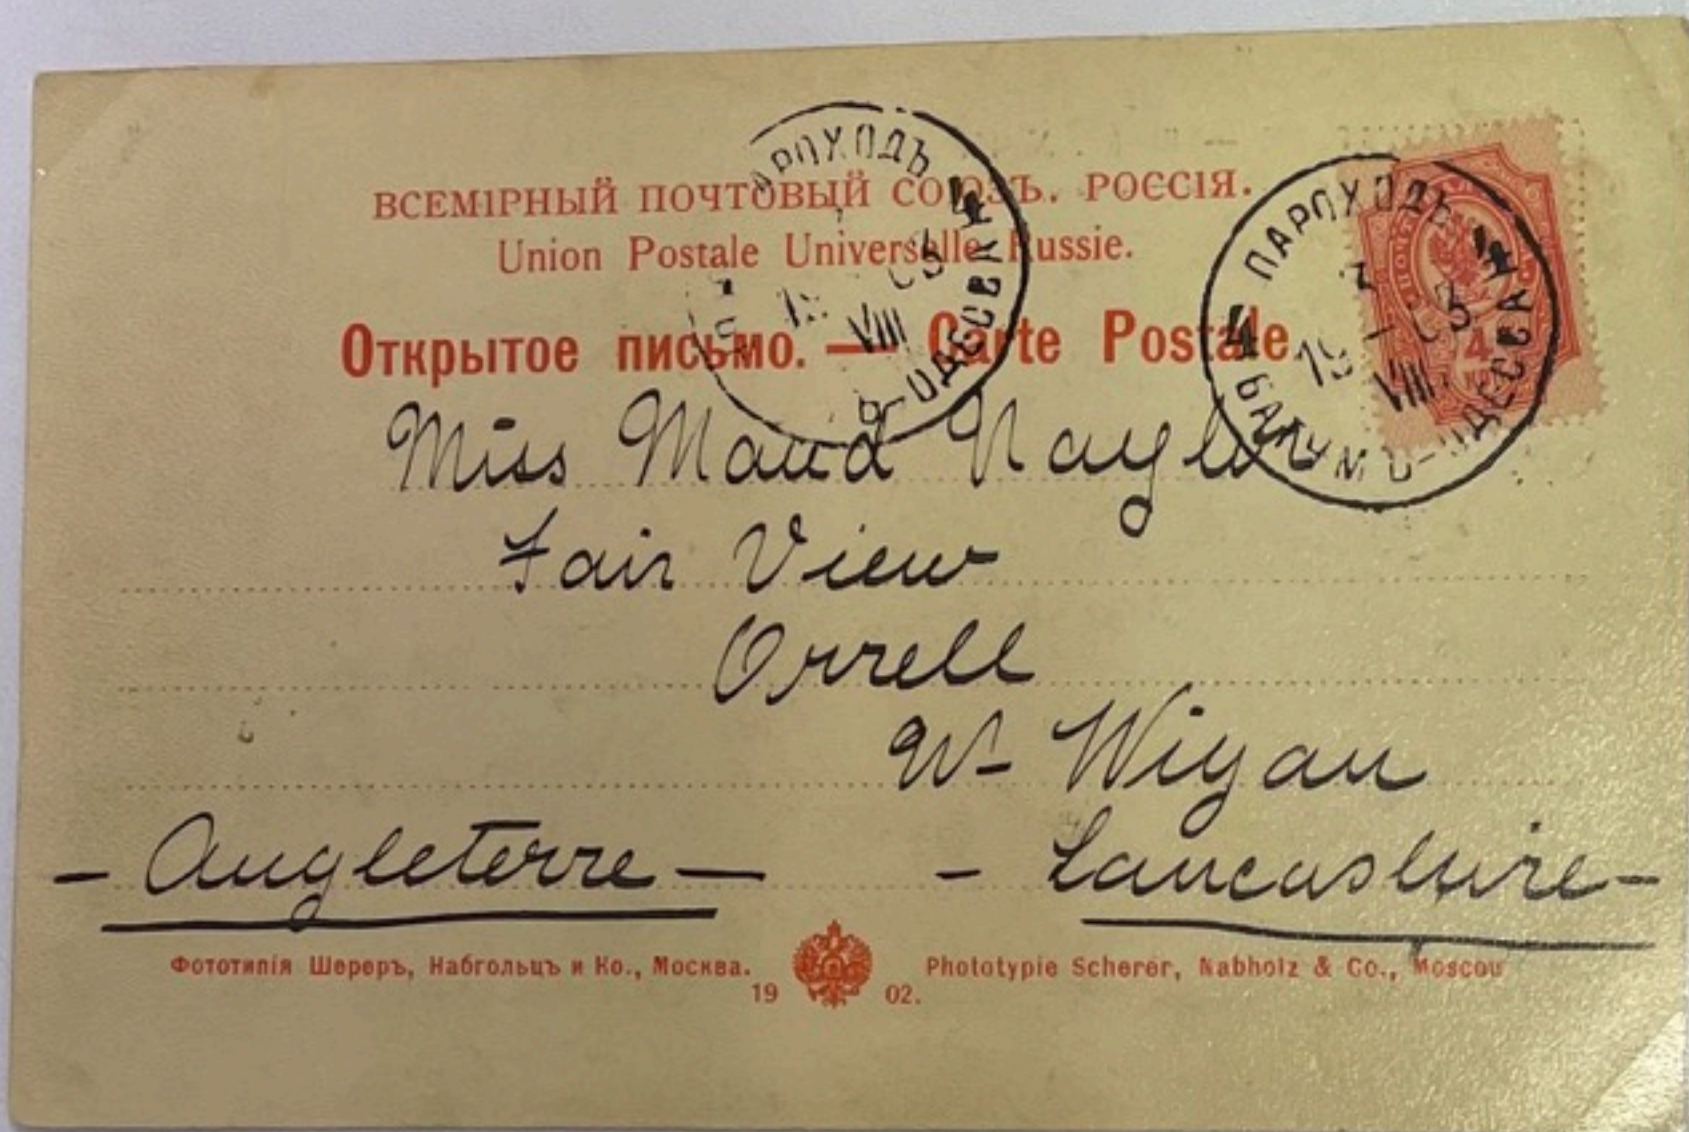 ВСЕМІРНЫЙ ПОЧТОВЫЙ СОЮЗЪ. РОССІЯ.
Union Postale Universelle Russie.
Открытое письмо. — Carte Postale
АРОХОДЪ 4
19 03
VIII
О-ОДЕССА
ПАРОХОДЪ 4
3
19 - 03
VIII
4 БАТУМО-ОДЕССА
4
Miss Maud Naylor
Fair View
Orrell
Nr Wigan
- Angleterre - - Lancashire -
Фототипія Шереръ, Набгольцъ и Ко., Москва. Phototypie Scherer, Nabholz & Co., Moscou
19 02.